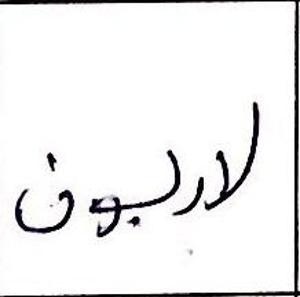 لارلبون